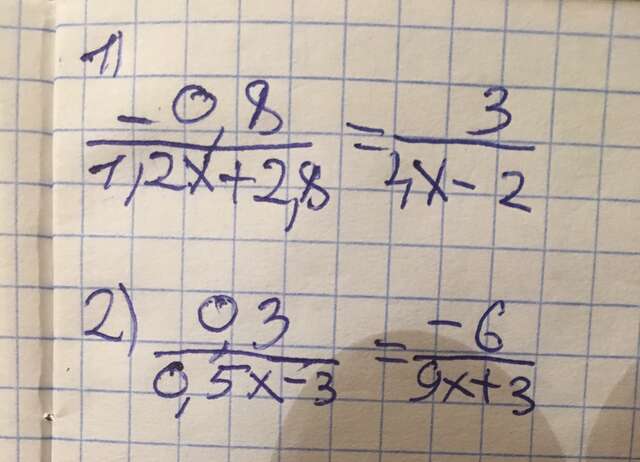 1)
-0,8 / 1,2x+2,8 = 3 / 4x-2
2) 0,3 / 0,5x-3 = -6 / 9x+3